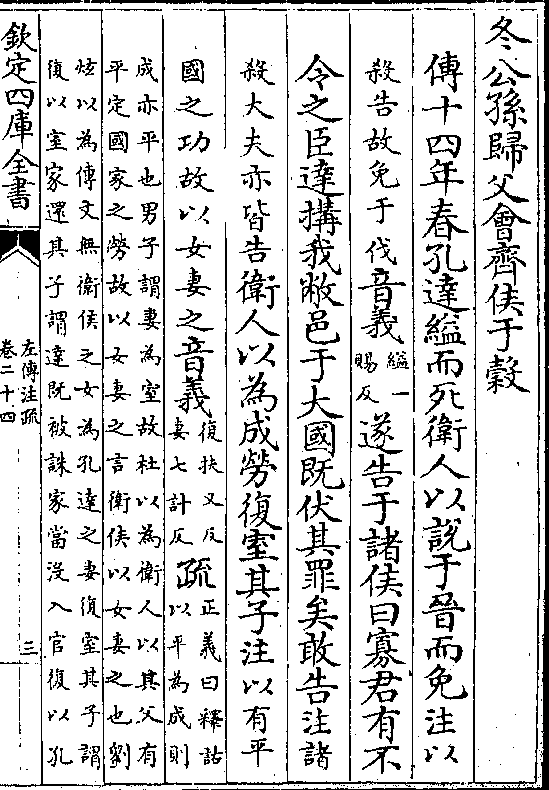 冬公孫歸父會齊侯于穀
傳十四年春孔達縊而死衛人以說于晉而免注以
殺告故免于伐音義縊一
賜反遂告于諸侯曰寡君有不
令之臣達搆我敝邑于大國既伏其罪矣敢告注諸
殺大夫亦皆告衛人以為成勞復室其子注以有平
國之功故以女妻之音義復扶又反
妻七計反疏正義曰釋詁
以平為成則
成亦平也男子謂妻為室故杜以為衛人以其父有
平定國家之勞故以女妻之言衛侯以女妻之也劉
炫以為傳文無衛侯之女為孔達之妻復室其子謂
復以室家還其子謂達既被誅家當沒入官復以孔
欽定四庫全書
左傳注疏
卷二十四
三